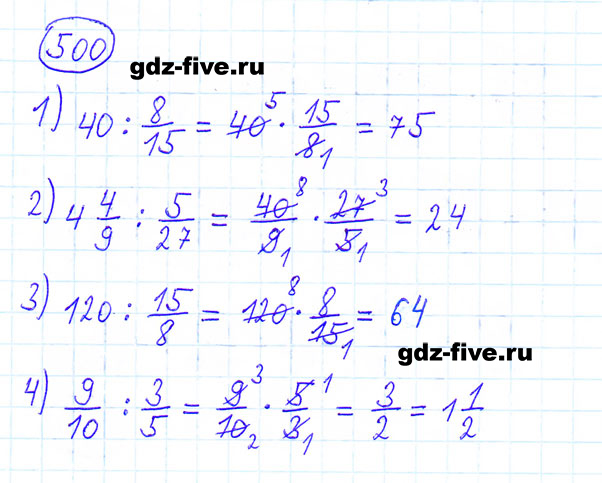 500
gdz-five.ru
1) 40 : 8/15 = 40 5 · 15/8 1 = 75
2) 4 4/9 : 5/27 = 40 8/9 1 · 27 3/5 1 = 24
3) 120 : 15/8 = 120 8 · 8/15 1 = 64
gdz-five.ru
4) 9/10 : 3/5 = 9 3/10 2 · 5 1/3 1 = 3/2 = 1 1/2